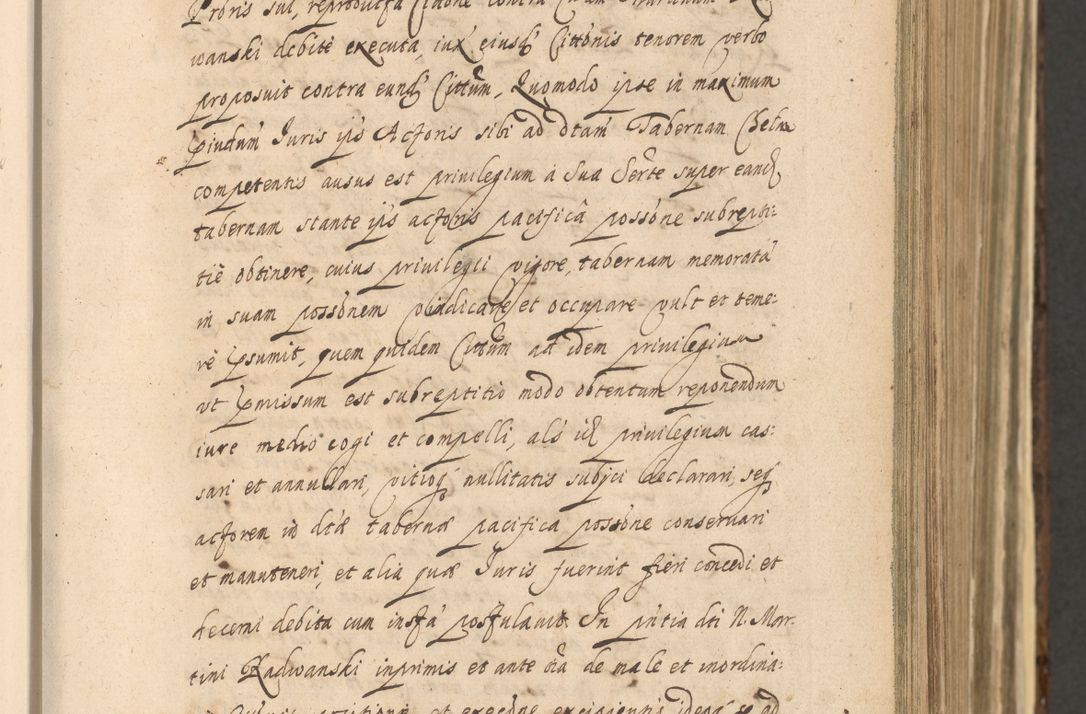 Proris sui, reproducta Citaone contra
wanski debitè executa, iux eiusd Cittonis tenorem verbo
proposuit contra eund Cittum, Quomodo ipse in maximum
piudum Iuris ipis Actoris sibi ad dtam Tabernam
competentis ausus est privilegium à Sua Serte super eand
tabernam stante ipis actoris pacificâ possone subrepti:
tiè obtinere, cuius privilegii vigore, tabernam memoratā
in suam possonem vindicare et occupare vult et teme:
rè psumit, quem quidem Cittum ad idem privilegium
ut pmissum est subreptitio modo obtentum reponendum
iure medio cogi et compelli, als id privilegium cas:
sari et annullari, vitioq nullitatis subijci declarari, seq
actorem in dtæ tabernæ pacifica possone conservari
et manuteneri, et alia quæ Iuris fuerint fieri concedi et
decerni debita cum instā postulavit. In pntia dti N. Mar:
tini Radwanski inprimis et ante oīa de male et inordina: